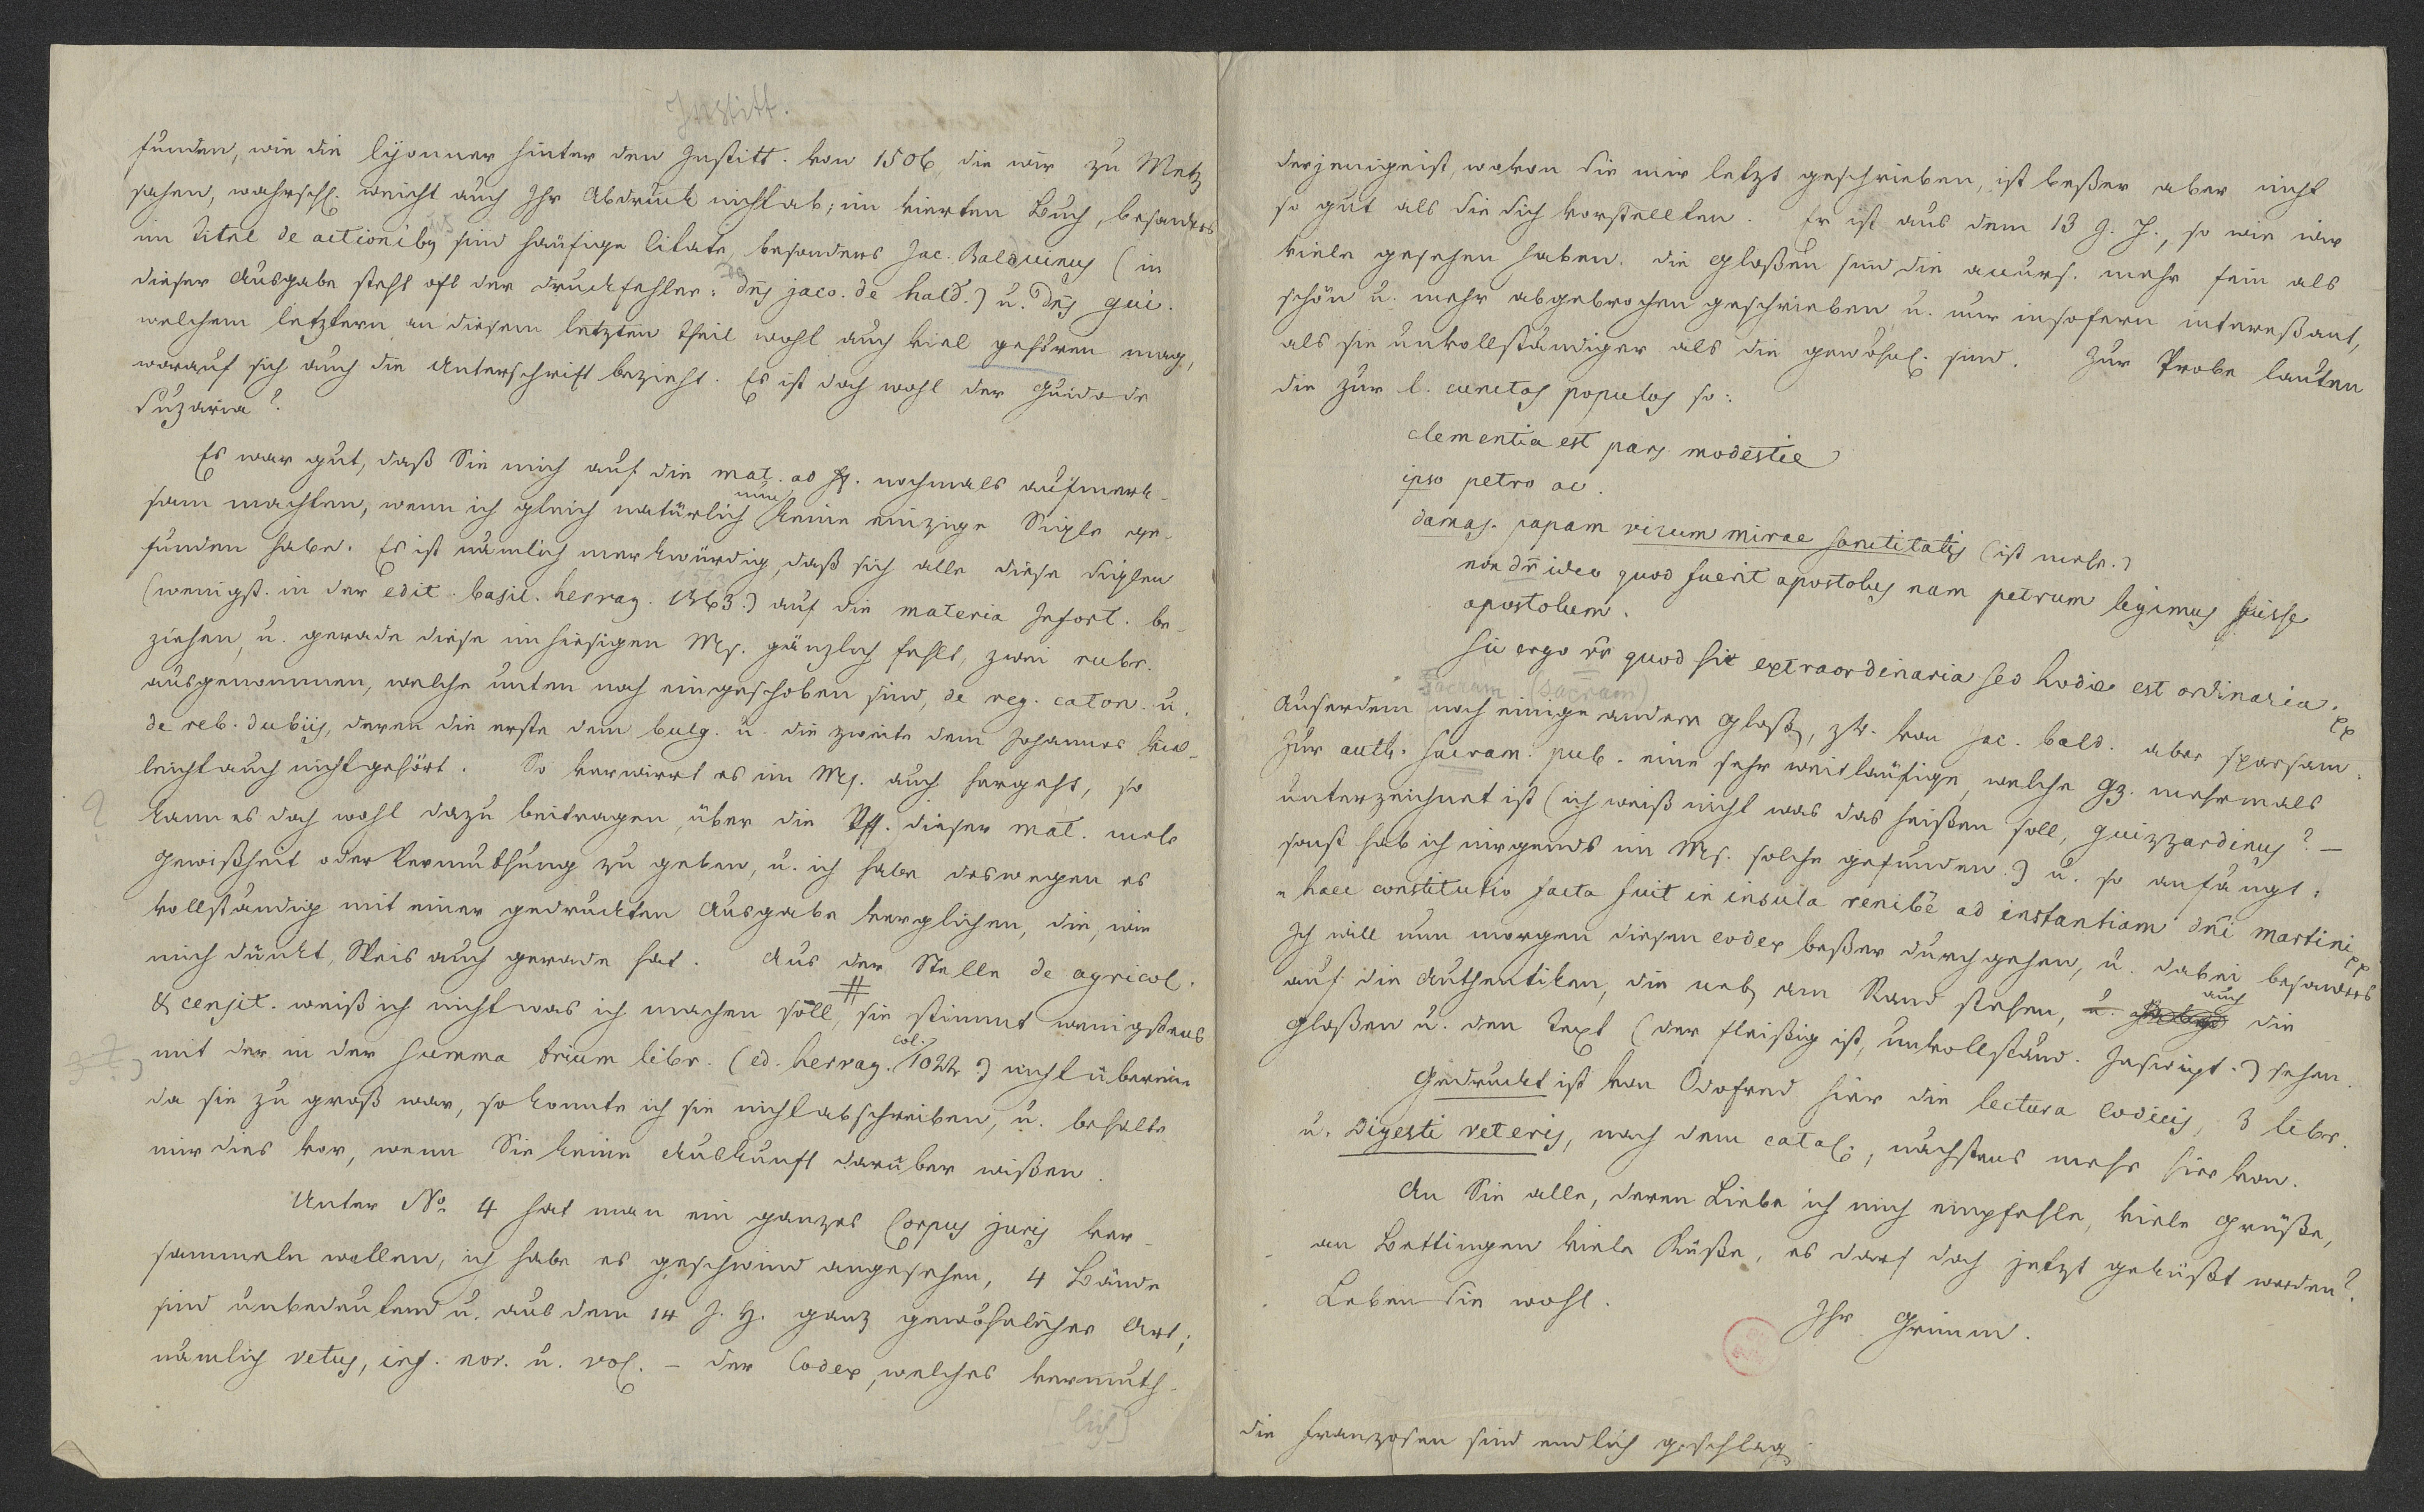 Institt.
funden, wie die lyonner hinter den Institt. von 1506, die wir zu Metz
sahen, wahrschl. weicht auch Ihr Abdruck nicht ab; im vierten Buch, besonders
im Titel de actionibus sind häufige Citate, besonders Jac. Balduinus (in
dieser Ausgabe steht oft der Druckfehler: dns jaco. de hald.) u. dns gui.
welchem letztern an diesem letzten Theil wohl auch viel gehören mag,
worauf sich auch die Unterschrift bezieht. Es ist doch wohl der Guido de
Suzaria?
Es war gut, daß Sie mich auf die mat. ad ff. nochmals aufmerk-
sam machten, wenn ich gleich natürlich nur keine einzige Sigle ge-
funden habe. Es ist nämlich merkwürdig, daß sich alle diese Siglen
(wenigst. in der edit. basil. hervag. 1563.) auf die materia Infort. be-
ziehen, u. gerade diese im hiesigen Ms. gänzlich fehlt, zwei rubr.
ausgenommen, welche unten noch eingeschoben sind, de reg. caton. u.
de reb. dubiis, deren die erste dem bulg. u. die zweite dem Johannes viel-
leicht auch nicht gehört. So verwirrt es im Ms. auch hergeht, so
kann es doch wohl dazu beitragen, über die Vff. dieser mat. mehr
Gewißheit oder Vermuthung zu geben, u. ich habe deswegen es
vollständig mit einer gedruckten Ausgabe verglichen, die, wie
mich dünkt, Weis auch gerade hat. Aus der Stelle de agricol.
& censit. weiß ich nicht was ich machen soll, sie stimmt wenigstens
mit der in der Summa trium libr. (ed. hervag. col. 1022.) nicht überein
da sie zu groß war, so konnte ich sie nicht abschreiben, u. behalte
mir dies vor, wenn Sie keine Auskunft darüber wißen.
Unter No. 4 hat man ein ganzes Corpus juris ver-
sammeln wollen, ich habe es geschwind angesehen, 4 Bände
sind unbedeutend u. aus dem 14 J. H. ganz gewöhnlicher Art;
nämlich vetus, inf. nov. u. vol. - der Codex, welches vermuth-
[lich]
derjenige ist, wovon Sie mir letzt geschrieben, ist beßer aber nicht
so gut als Sie sich vorstellten. Er ist aus dem 13 J. H., so wie wir
viele gesehen haben. die Gloßen sind die accurs. mehr fein als
schön u. mehr abgebrochen geschrieben u. nur insofern intereßant,
als sie unvollständiger als die gewöhnl. sind. Zur Probe lauten
die zur l. cunctos populos so:
clementia est pars modestie
ipso petro ac.
damas. papam virum mirae sanctitatis (ist mehr.)
non dn ideo quod fuerit apostolus nam petrum legimus fuisse
apostolum.
sii ergo rr quod sit extraordinaria sed hodie est ordinaria. pp
Sacram (sacram)
Auserdem noch einige andere Gloß, zb. von jac. bald. aber sparsam.
Zur auth. sacram. pub. eine sehr weitläufige, welche gz. mehrmals
unterzeichnet ist (ich weiß nicht was das heißen soll, guizzardinus? -
sonst hab ich nirgends im Ms. solche gefunden.) u. so anfängt:
" haec constitutio facta fuit in insula renibe ad instantiam dni martini pp
Ich will nun morgen diesen codex beßer durchgehen, u. dabei besonders
auf die Authentiken, die neb am Rand stehen, auch die
Gloßen u. den Text (der fleißig ist, unvollständ. Inscript.) sehen.
Gedruckt ist von Odofred hier die lectura codicis, 3 libr.
u. Digesti veteris, nach dem catal., nächstens mehr hier von.
An Sie alle, deren Liebe ich mich empfehle, viele Grüße,
an Bettingen viele Küße, es darf doch jetzt geküßt werden?
Leben Sie wohl.
Ihr Grimm.
die Franzosen sind endlich geschlag